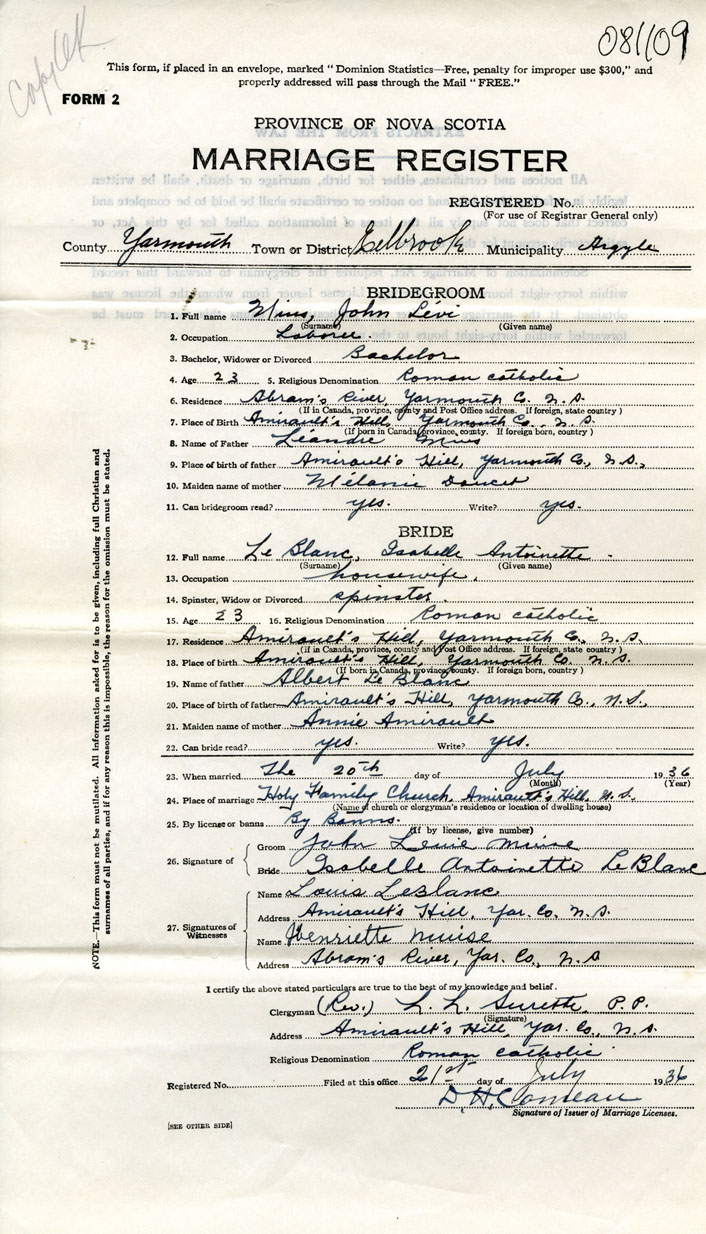 081109
This form, if placed in an envelope, marked "Dominion Statistics—Free, penalty for improper use $300," and
properly addressed will pass through the Mail "FREE."
FORM 2
PROVINCE OF NOVA SCOTIA
MARRIAGE REGISTER
REGISTERED No.
(For use of Registrar General only)
County Yarmouth Town or District Eelbrook Municipality Argyle
BRIDEGROOM
1. Full name Mius, John Lévi
(Surname) (Given name)
2. Occupation Laborer.
3. Bachelor, Widower or Divorced Bachelor
4. Age 23 5. Religious Denomination Roman catholic
6. Residence Abram's River, Yarmouth Co. N.S.
(If in Canada, province, county and Post Office address. If foreign, state country)
7. Place of Birth Amirault's Hill, Yarmouth Co., N.S.
(If born in Canada, province, county. If foreign born, country)
8. Name of Father Léandre Mius
9. Place of birth of father Amirault's Hill, Yarmouth Co., N.S.,
10. Maiden name of mother Mélanie Doucet
11. Can bridegroom read? yes. Write? yes.
BRIDE
12. Full name Le Blanc, Isabelle Antoinette.
(Surname) (Given name)
13. Occupation housewife.
14. Spinster, Widow or Divorced spinster.
15. Age 23 16. Religious Denomination Roman catholic
17. Residence Amirault's Hill, Yarmouth Co., N.S.
(if in Canada, province, county and Post Office address. If foreign, state country)
18. Place of birth Amirault's Hill, Yarmouth Co. N.S.
(If born in Canada, province, county. If foreign born, country)
19. Name of father Albert Le Blanc
20. Place of birth of father Amirault's Hill, Yarmouth Co., N.S.,
21. Maiden name of mother Annie Amirault
22. Can bride read? yes. Write? yes.
23. When married The 20th day of July 1936
(Month) (Year)
24. Place of marriage Holy Family Church, Amirault's Hill, N.S.
(Name of church or clergyman's residence or location of dwelling house)
25. By license or banns By Banns.
(If by license, give number)
26. Signature of
Groom John Levie Muise
Bride Isabelle Antoinette LeBlanc
27. Signatures of Witnesses
Name Louis LeBlanc
Address Amirault's Hill, Yar. Co. N.S.
Name Henriette Muise
Address Abram's River, Yar. Co., N.S
I certify the above stated particulars are true to the best of my knowledge and belief.
Clergyman (Rev.) L. L. Surette, P.P.
(Signature)
Address Amirault's Hill, Yar. Co., N.S.
Religious Denomination Roman catholic
Registered No. Filed at this office 21st day of July 1936
D. H. Comeau
Signature of Issuer of Marriage Licenses.
[SEE OTHER SIDE]
NOTE.—This form must not be mutilated. All information asked for is to be given, including full Christian and
surnames of all parties, and if for any reason this is impossible, the reason for the omission must be stated.